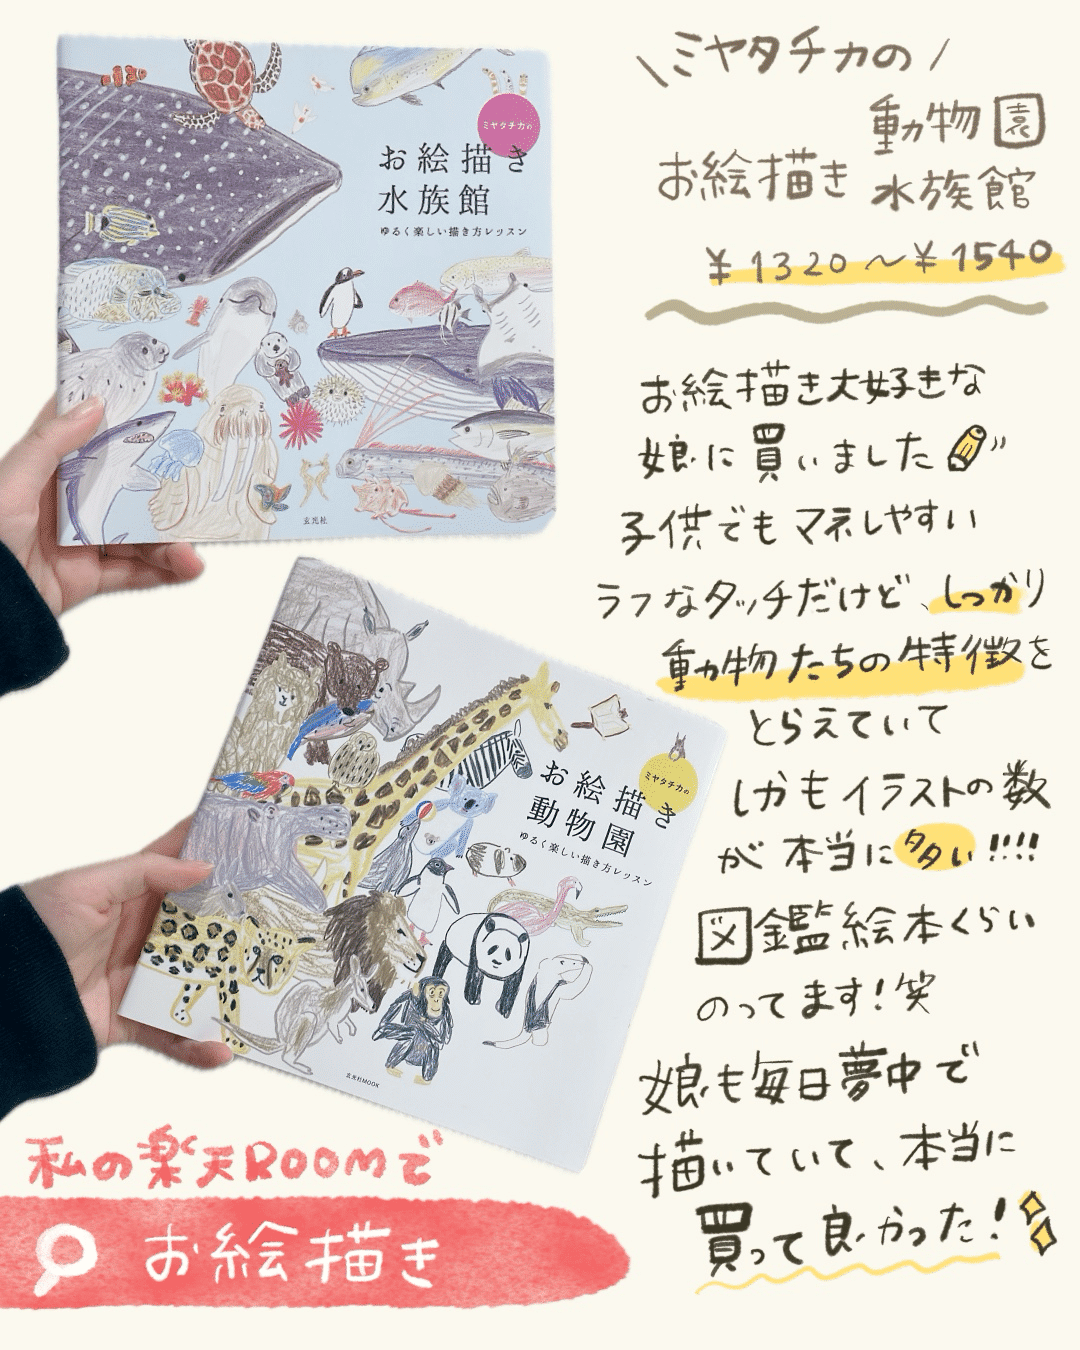 ミヤタチカの
お絵描き
水族館
ゆるく楽しい描き方レッスン
玄光社
ミヤタチカの
お絵描き
動物園
ゆるく楽しい描き方レッスン
玄光社MOOK
\ミヤタチカの/
お絵描き 動物園
水族館
¥1320〜¥1540
お絵描き大好きな
娘に買いました
子供でもマネしやすい
ラフなタッチだけど、しっかり
動物たちの特徴を
とらえていて
しかもイラストの数
が本当に多い!!!!
図鑑絵本くらい
のってます!笑
娘も毎日夢中で
描いていて、本当に
買って良かった!
私の楽天ROOMで
お絵描き